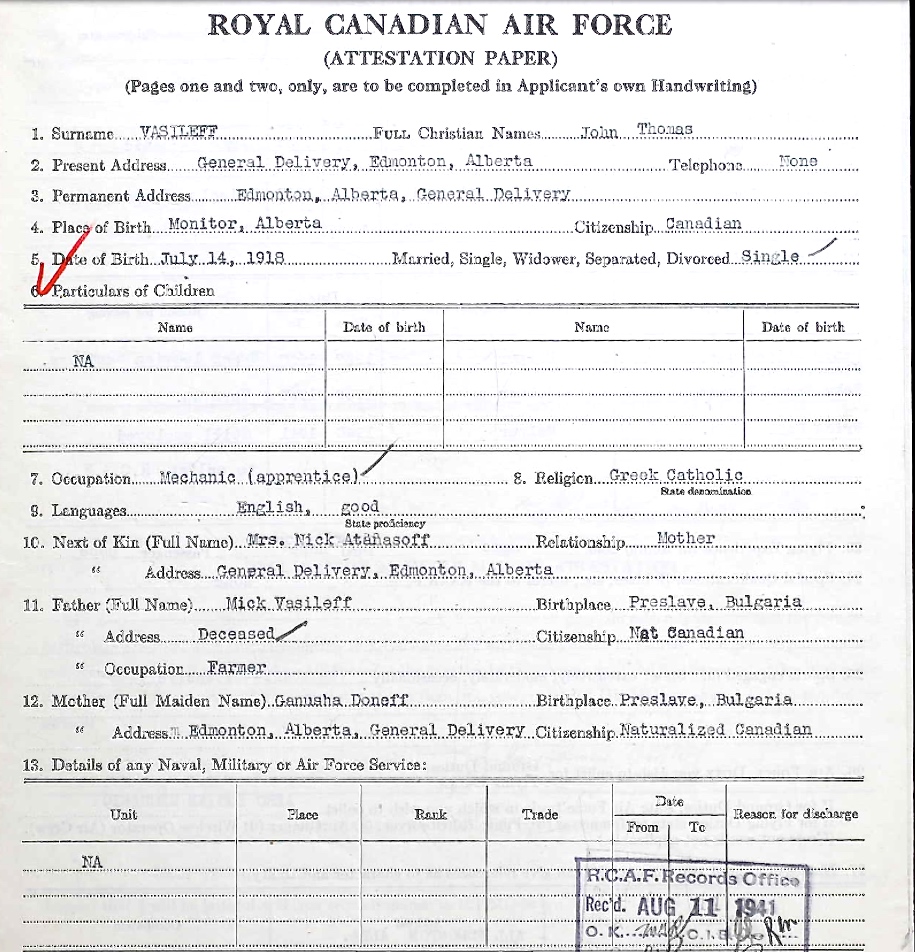 ROYAL CANADIAN AIR FORCE
(ATTESTATION PAPER)
(Pages one and two, only, are to be completed in Applicant's own Handwriting)
1. Surname VASILEFF FULL Christian Names John Thomas
2. Present Address General Delivery, Edmonton, Alberta Telephone None
3. Permanent Address Edmonton, Alberta, General Delivery
4. Place of Birth Monitor, Alberta Citizenship Canadian
5. Date of Birth July 14, 1918 Married, Single, Widower, Separated, Divorced Single
6. Particulars of Children
Name Date of birth Name Date of birth
NA
7. Occupation Mechanic (apprentice) 8. Religion Greek Catholic
State denomination
9. Languages English, good
State proficiency
10. Next of Kin (Full Name) Mrs. Nick Atanasoff Relationship Mother
“ Address General Delivery, Edmonton, Alberta
11. Father (Full Name) Mick Vasileff Birthplace Preslave, Bulgaria
“ Address Deceased Citizenship Nat Canadian
“ Occupation Farmer
12. Mother (Full Maiden Name) Ganusha Doneff Birthplace Preslave, Bulgaria
“ Address Edmonton, Alberta, General Delivery Citizenship Naturalized Canadian
13. Details of any Naval, Military or Air Force Service:
Unit Place Rank Trade Date Reason for discharge
From To
NA
R.C.A.F. Records Office
Rec'd. AUG 11 1941
O. K.